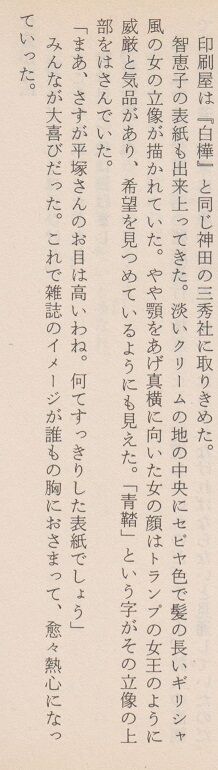 印刷屋は『白樺』と同じ神田の三秀社に取りきめた。
智恵子の表紙も出来上ってきた。淡いクリームの地の中央にセピヤ色で髪の長いギリシャ
風の女の立像が描かれていた。やや顎をあげ真横に向いた女の顔はトランプの女王のように
威厳と気品があり、希望を見つめているようにも見えた。「青鞜」という字がその立像の上
部をはさんでいた。
「まあ、さすが平塚さんのお目は高いわね。何てすっきりした表紙でしょう」
みんなが大喜びだった。これで雑誌のイメージが誰もの胸におさまって、愈々熱心になっ
ていった。